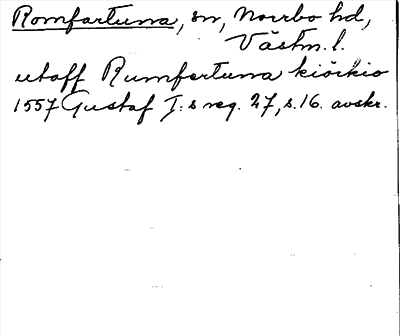 Romfartuna, sn, Norrbo hd,
Västm. l.
utaff Rumfertuna kiörkio
1557 Gustaf I:s reg. 27, s. 16. avskr.